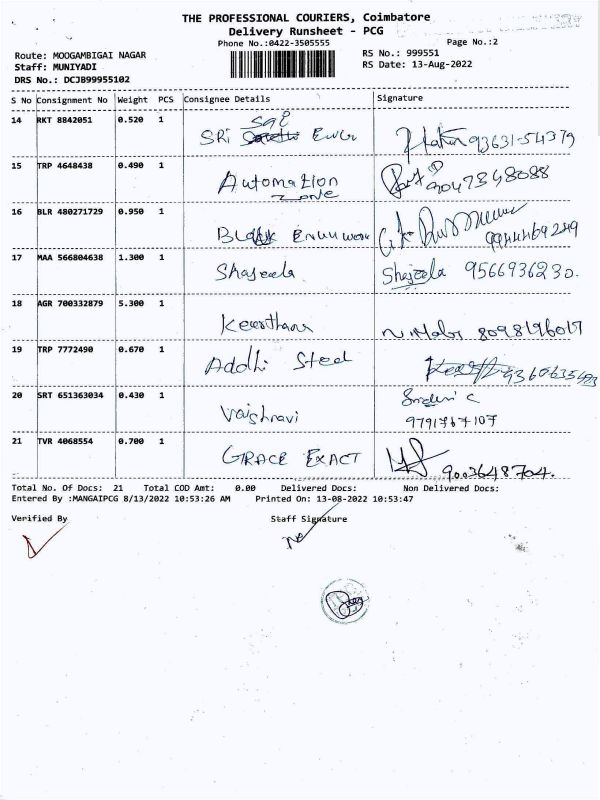 THE PROFESSIONAL COURIERS, Coimbatore
Delivery Runsheet - PCG
Phone No.:0422-3505555
Page No.:2
Route: MOOGAMBIGAI NAGAR
RS No.: 999551
Staff: MUNIYADI
RS Date: 13-Aug-2022
DRS No.: DCJB99955102
S No Consignment No Weight PCS Consignee Details Signature
14 RKT 8842051 0.520 1 SRi Sai 93631-54379
15 TRP 4648438 0.490 1 Automation Zone 9047348088
16 BLR 480271729 0.950 1
17 MAA 566804638 1.300 1 Shajeela Shajeela 9566936230.
18 AGR 700332879 5.300 1 Keerthana 8098196017
19 TRP 7772490 0.670 1 Addhi Steel 9360635493
20 SRT 651363034 0.430 1 Vaishnavi 9791767107
21 TVR 4068554 0.700 1 GRACE EXACT 9003648704.
Total No. Of Docs: 21 Total COD Amt: 0.00 Delivered Docs: Non Delivered Docs:
Entered By :MANGAIPCG 8/13/2022 10:53:26 AM Printed On: 13-08-2022 10:53:47
Verified By Staff Signature